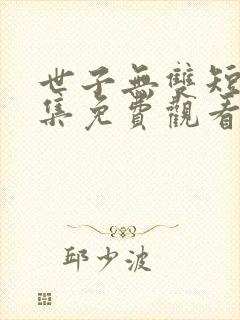 世子無雙短
集免費觀看
邱少波